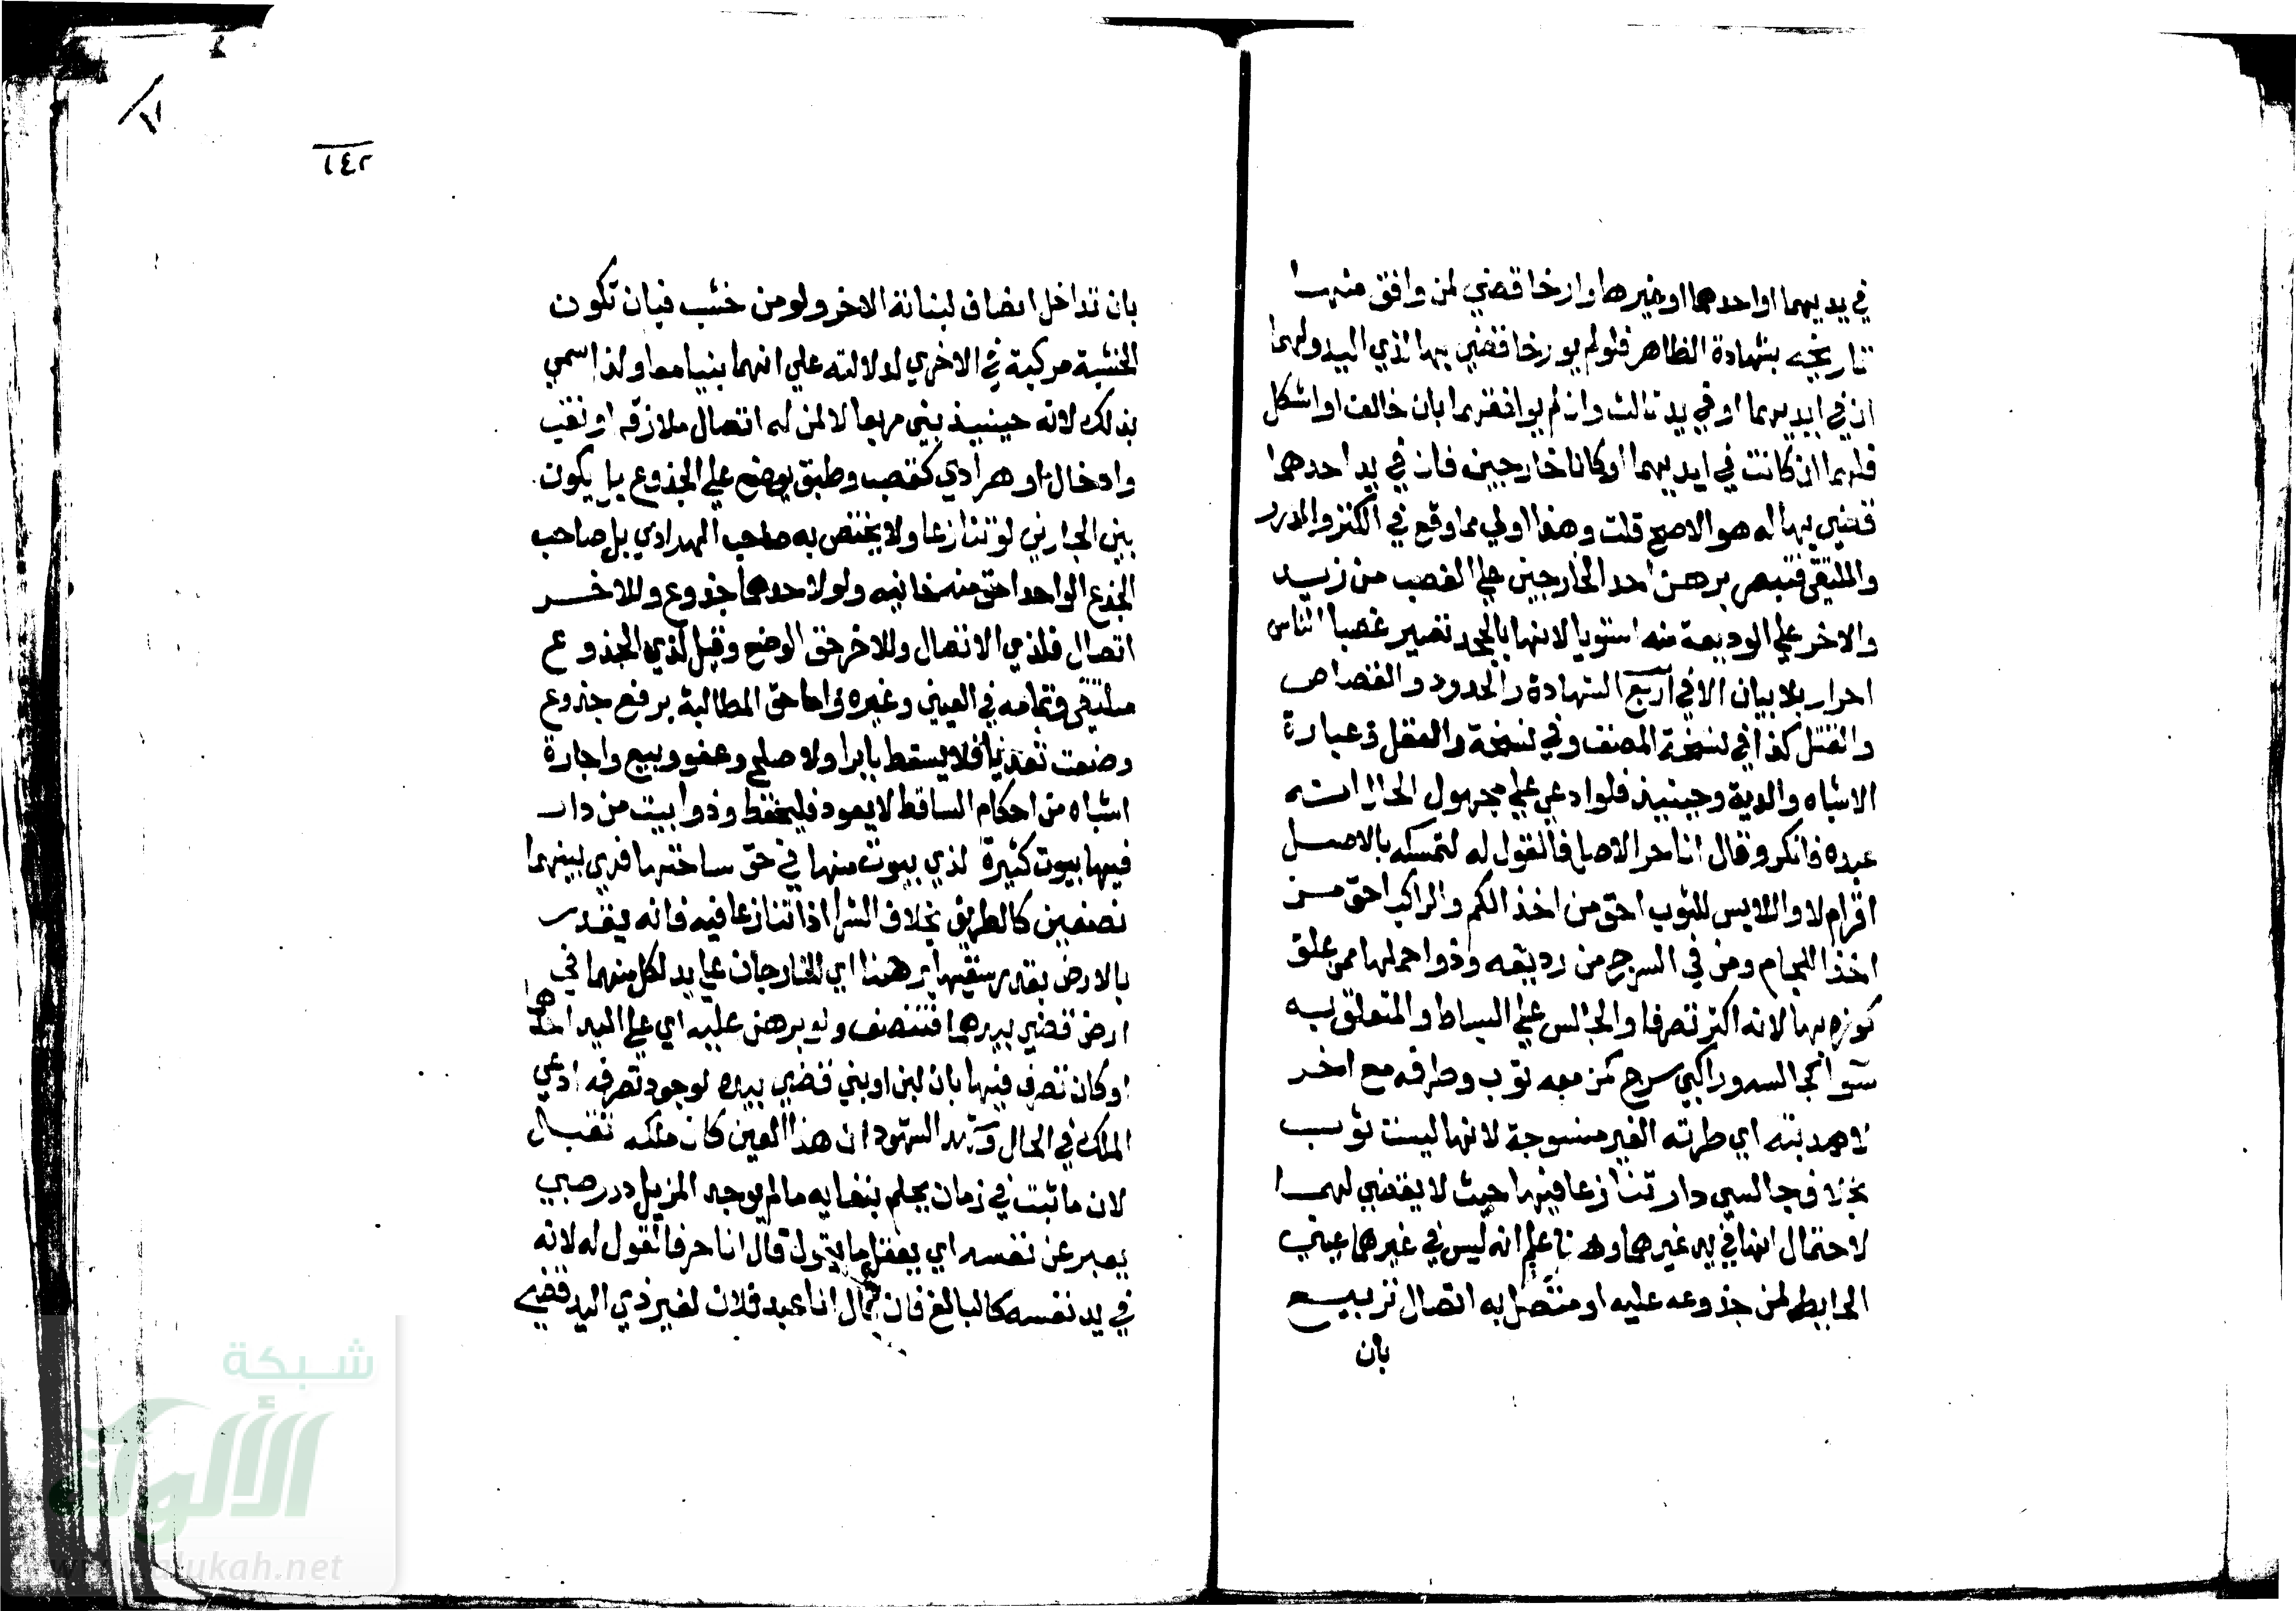 في يديهما او احدهما او غيرهما وارخا قضي لمن وافق منهما
تاريخه بشهادة الظاهر فلو لم يورخا قضي بها لذي اليد ولهما
ان في ايديهما او في يد ثالث وان لم يوافقهما بان خالف او اشكل
فلهما ان كانت في ايديهما او كانا خارجين فان في يد احدهما
قضي بها له هو الاصح قلت وهذا اولي مما وقع في الكنز والدرر
والملتقي فتبصر برهن احد الخارجين علي الغصب من زيد
والاخر علي الوديعة منه استويا لانها بالجحد تصير غصبا الناس
احرار بلا بيان الا في اربع الشهادة والحدود والقصاص
والقتل كذا في نسخة المصنف وفي نسخة والعقل وعبارة
الاشباه والدية وحينيذ فلو ادعي علي مجهول الحال انه
عبده فانكر وقال انا حر الاصل فالقول له لتمسكه بالاصل
اقرام لا واللابس للثوب احق من اخذ الكم والراكب احق من
اخذ اللجام ومن في السرج من رديفه وذو حملها ممن علق
كوزه بها لانه اكثر تصرفا والجالس علي البساط والمتعلق به
سوا كجالسه وراكبي سرج كمن معه ثوب وطرفه مع اخر
لا هدبته اي طرته الغير منسوجة لانها ليست ثوب
بخلاف جالسي دار تنازعا فيها حيث لا يقضي لهما
لاحتمال انها في يد غيرهما وهنا علم انه ليس في غيرهما عيني
الحايط لمن جذوعه عليه او متصل به اتصال تربيع
بان
١٤٢
بان تداخل انصاف لبناته الاخر ولو من خشب فبان تكون
الخشبة مركبة في الاخري لدلالته علي انهما بنيا معا ولذا سمي
بذلك لانه حينيذ يبني مربعا لا لمن له اتصال ملازقة او نقب
وادخال او هرادي كقصب وطبق يوضع علي الجذوع بل يكون
بين الجارين لو تنازعا ولا يختص به صاحب الهرادي بل صاحب
الجذع الواحد احق منه خانيه ولو لاحدهما جذوع وللاخر
اتصال فلذي الاتصال وللاخر حق الوضع وقيل لذي الجذوع
ملتقي وتمامه في العيني وغيره واما حق المطالبة برفع جذوع
وضعت تعديا فلا يسقط بابرا ولا صلح وعفو وبيع واجارة
اشباه من احكام الساقط لا يعود فليحفظ وذو بيت من دار
فيها بيوت كثيرة لذي بيوت منها في حق ساحتها فهي بينهما
نصفين كالطريق بخلاف الشرب اذا تنازعا فيه فانه يقدر
بالارض بقدر سقيها برهنا اي الخارجان علي يد لكل منهما في
ارض قضي بيدهما فتنصف ولو برهن عليه اي علي اليد احدهما
او كان تصرف فيها بان لبن او بني قضي بيده لوجود تصرفه ادعي
الملك في الحال وشهد الشهود ان هذا العين كان ملكه تقبل
لان ما ثبت في زمان يحكم ببقايه ما لم يوجد المزيل درر صبي
يعبر عن نفسه اي يعقل ما يقول قال انا حر فالقول له لانه
في يد نفسه كالبالغ فان قال انا عبد فلان لغير ذي اليد قضي
شبكة
الألوكة
www.alukah.net